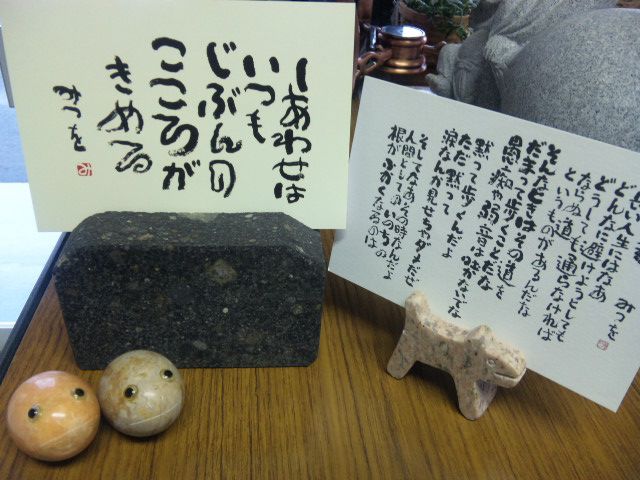 しあわせは
いつも
じぶんの
こころが
きめる
みつを
み
みつを
い人生にはなあ
どんなに避けようとしても
どうしても通らなければ
ならぬ道
というものがあるんだな
そんなときはその道を
だまって歩くことだな
愚痴や弱音は吐かないでな
黙って歩くんだよ
ただ黙って
涙なんか見せちゃダメだぜ
そしてなあその時なんだよ
人間としてのいのちの
根がふかくなるのは